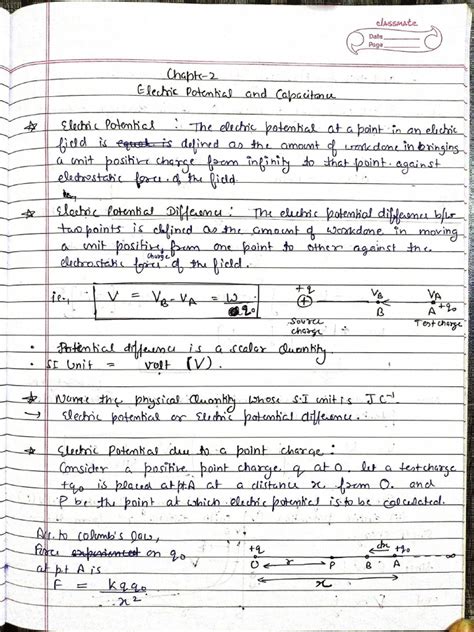 classmate
Date
Page
Chapte-2
Electric Potential and Capacitance
☆ Electric Potential : The electric potential at a point in an electric
field is equal is defined as the amount of workdone in bringing
a unit positive charge from infinity to that point against
electrostatic force of the field.
☆ Electric Potential Difference : The electric potential difference b/w
two points is defined as the amount of workdone in moving
a unit positive charge from one point to other against the
electrostatic force of the field.
i.e., V = VB - VA = W/q0
+q VB VA
⊕ B A +q0
Source charge Test charge
• Potential difference is a scalar Quantity.
• SI Unit = volt (V).
☆ Name the physical Quantity whose S.I unit is J C⁻¹
→ Electric potential or Electric potential difference.
☆ Electric Potential due to a point charge :
Consider a positive point charge q at O, let a test charge
+q0 is placed at pt A at a distance x from O. and
P be the point at which electric potential is to be calculated.
Ac. to columb's law,
Force experienced on q0
at pt A is
F = kqq0/x²
+q dx +q0
O r P B A ∞
x